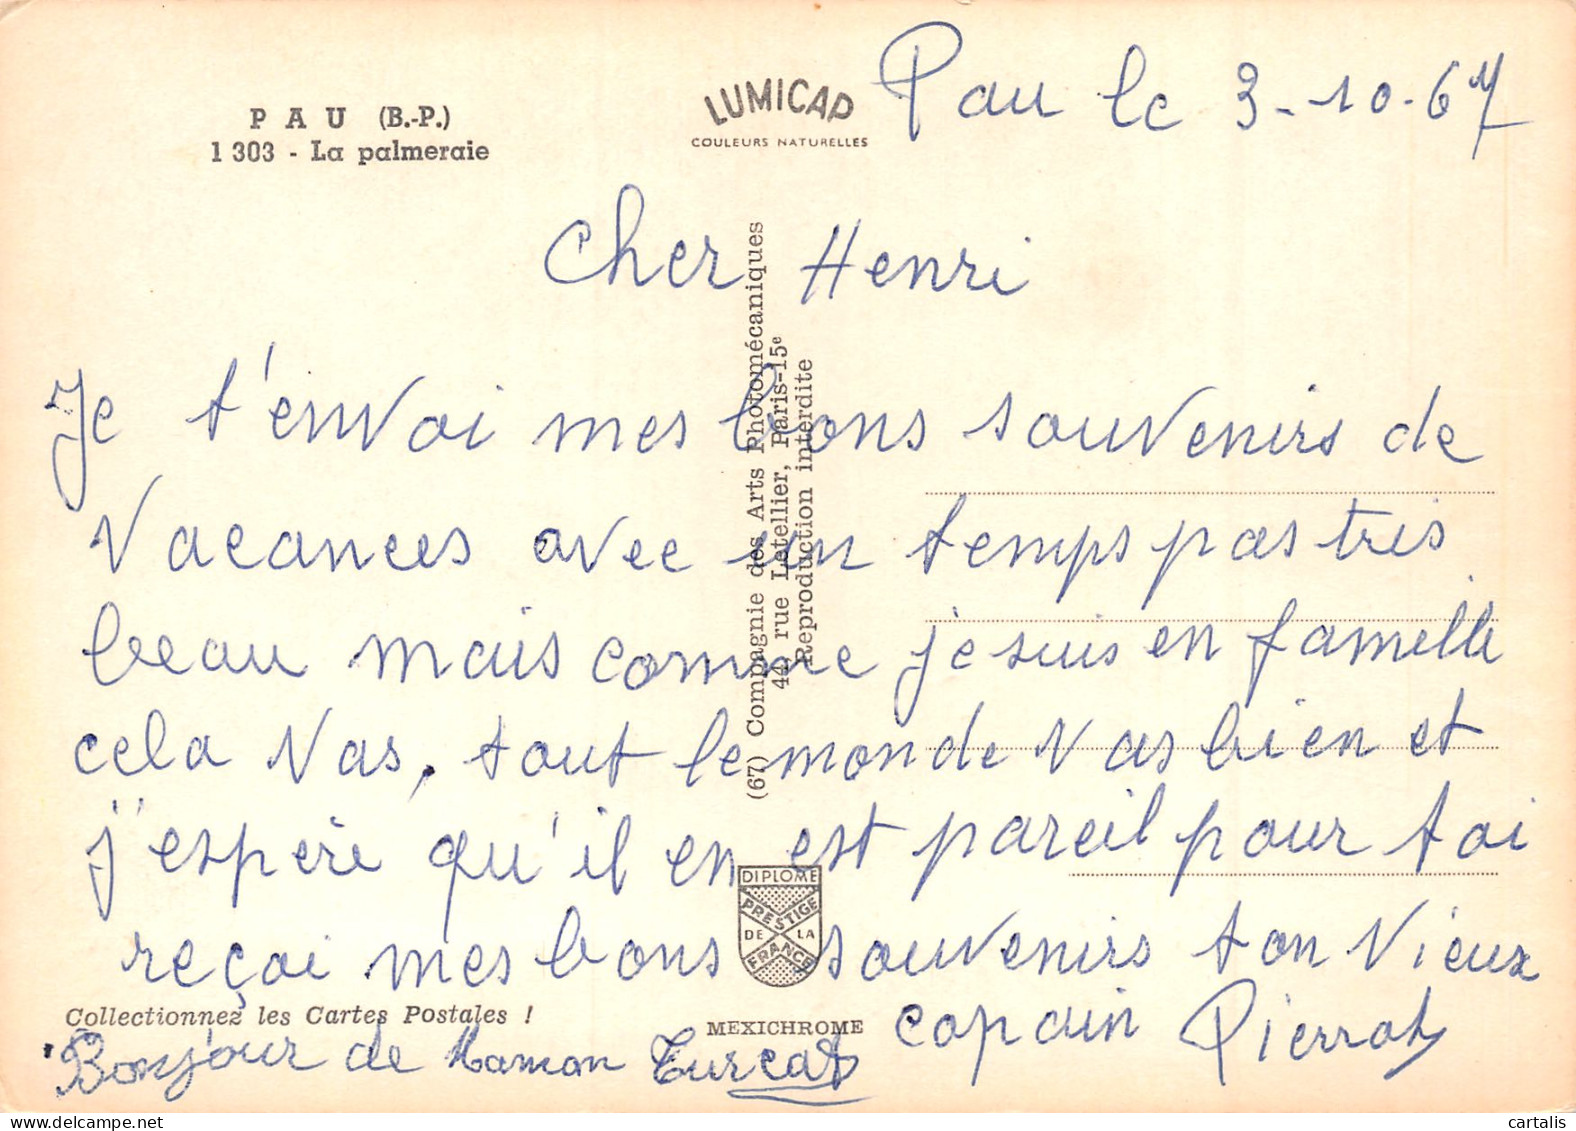 PAU (B.-P.)
1 303 - La palmeraie
LUMICAP
COULEURS NATURELLES
Pau le 3-10-67
Cher Henri
Je t'envoi mes bons souvenirs de
Vacances avec un temps pas tres
beau mais comme je suis en famille
cela Vas, tout le monde Vas bien et
j'espère qu'il en est pareil pour toi
reçoi mes bons souvenirs ton Vieux
copain Pierrot
Bonjour de Maman Turcat
(67) Compagnie des Arts Photomécaniques
44, rue Letellier, Paris-15e
Reproduction interdite
DIPLOME
PRESTIGE
DE LA
FRANCE
Collectionnez les Cartes Postales !
MEXICHROME
cartalis